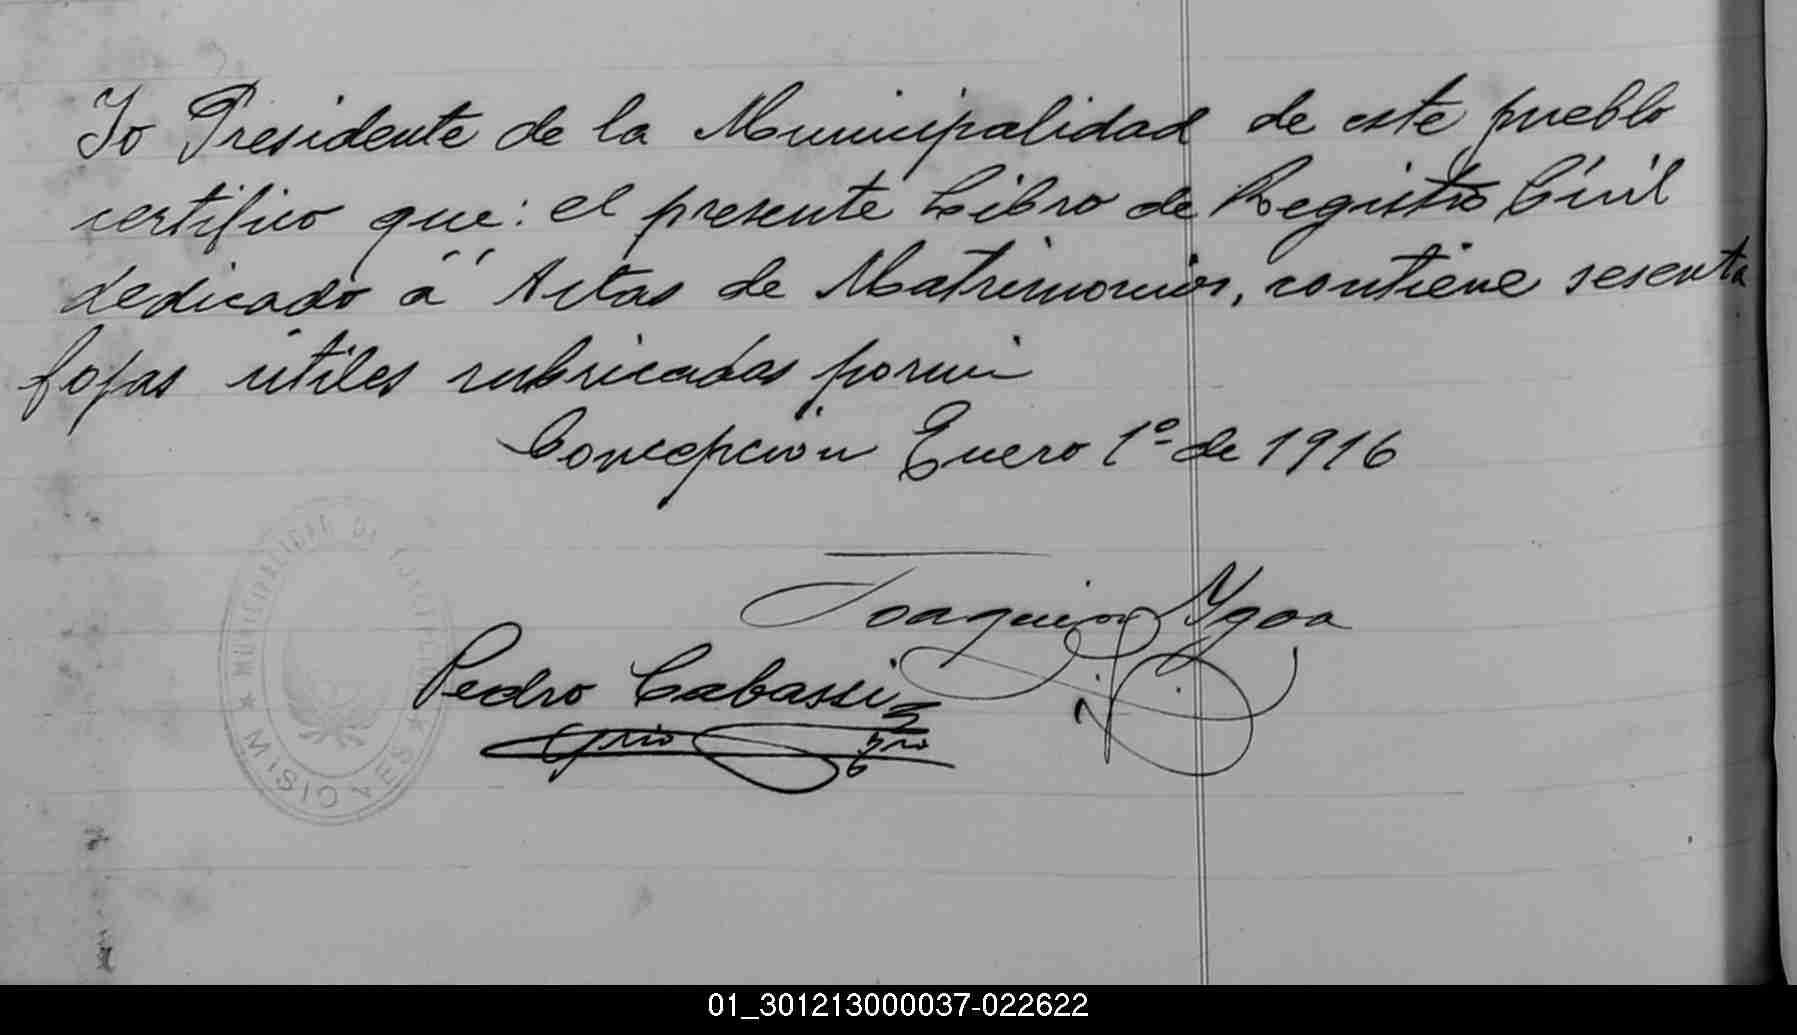 Yo Presidente de la Municipalidad de este pueblo
certifico que: el presente Libro de Registro Civil
dedicado á Actas de Matrimonios, contiene sesenta
fojas útiles rubricadas por mi
Concepción Enero 1º de 1916
Joaquin Ygoa
Pedro Cabassi
Srio
MUNICIPALIDAD DE CONCEPCION
★ MISIONES ★
01_301213000037-022622